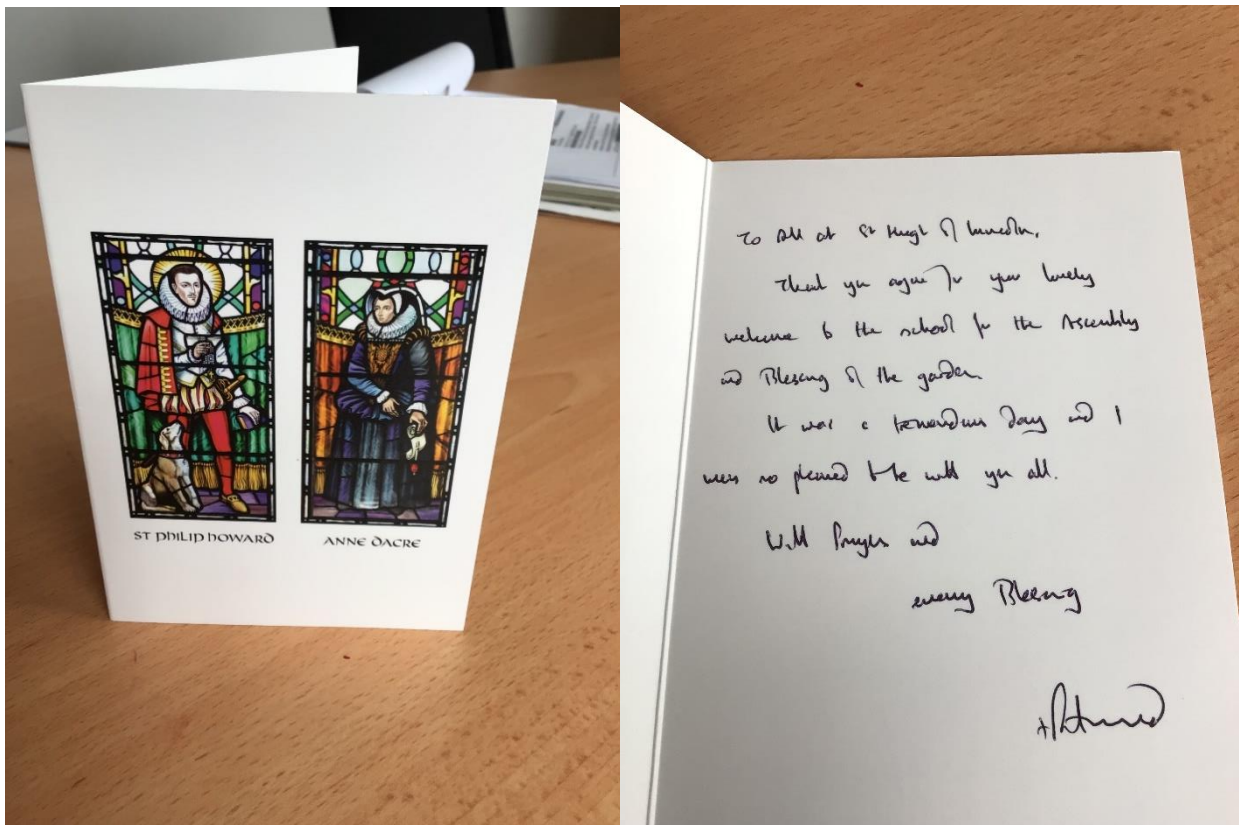 ST PHILIP HOWARD
ANNE DACRE
To All at St Hugh of Lincoln,
Thank you again for your lovely
welcome to the school for the Assembly
and Blessing of the garden.
It was a tremendous day and I
was so pleased to be with you all.
With Prayers and
every Blessing
+Richard